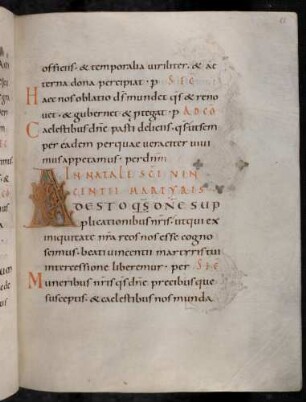 officiens · & temporalia uiriliter · & ae
terna dona percipiat · p SEC
Haec nos oblatio ds mundet qs & reno
uet · & gubernet & ptegat · p AD CO
Caelestibus dne pasti deliciis · qs ut sem
per eadem per quae ueraciter uiui
mus appetamus · per dnm
IN NATALE SCI VIN
CENTII MARTYRIS
ADESTO QS DNE SUP
plicationibus nris · ut qui ex
iniquitate nra reos nos esse cogno
scimus · beati uincentii martyris tui
intercessione liberemur · per SEC
Muneribus nris qs dne precibusque
susceptis · & caelestibus nos munda